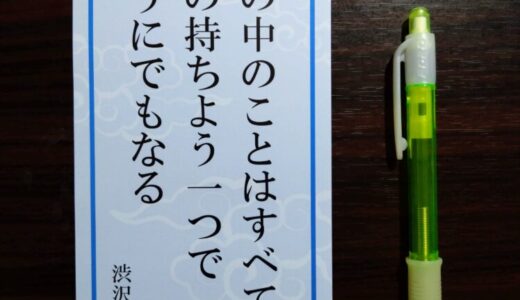 の中のことはすべて
の持ちよう一つで
うにでもなる
渋沢